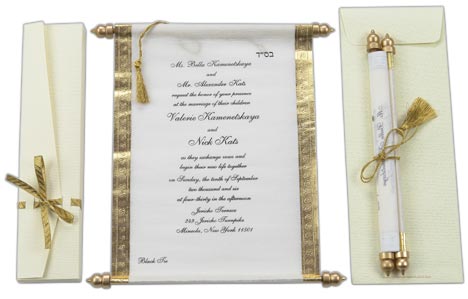 בס״ד
Ms. Bella Kamenetskaya
and
Mr. Alexander Kats
request the honor of your presence
at the marriage of their children
Valerie Kamenetskaya
and
Nick Kats
as they exchange vows and
begin their new life together
on Sunday, the tenth of September
two thousand and six
at four-thirty in the afternoon
Jericho Terrace
249 Jericho Turnpike
Mineola, New York 11501
Black Tie